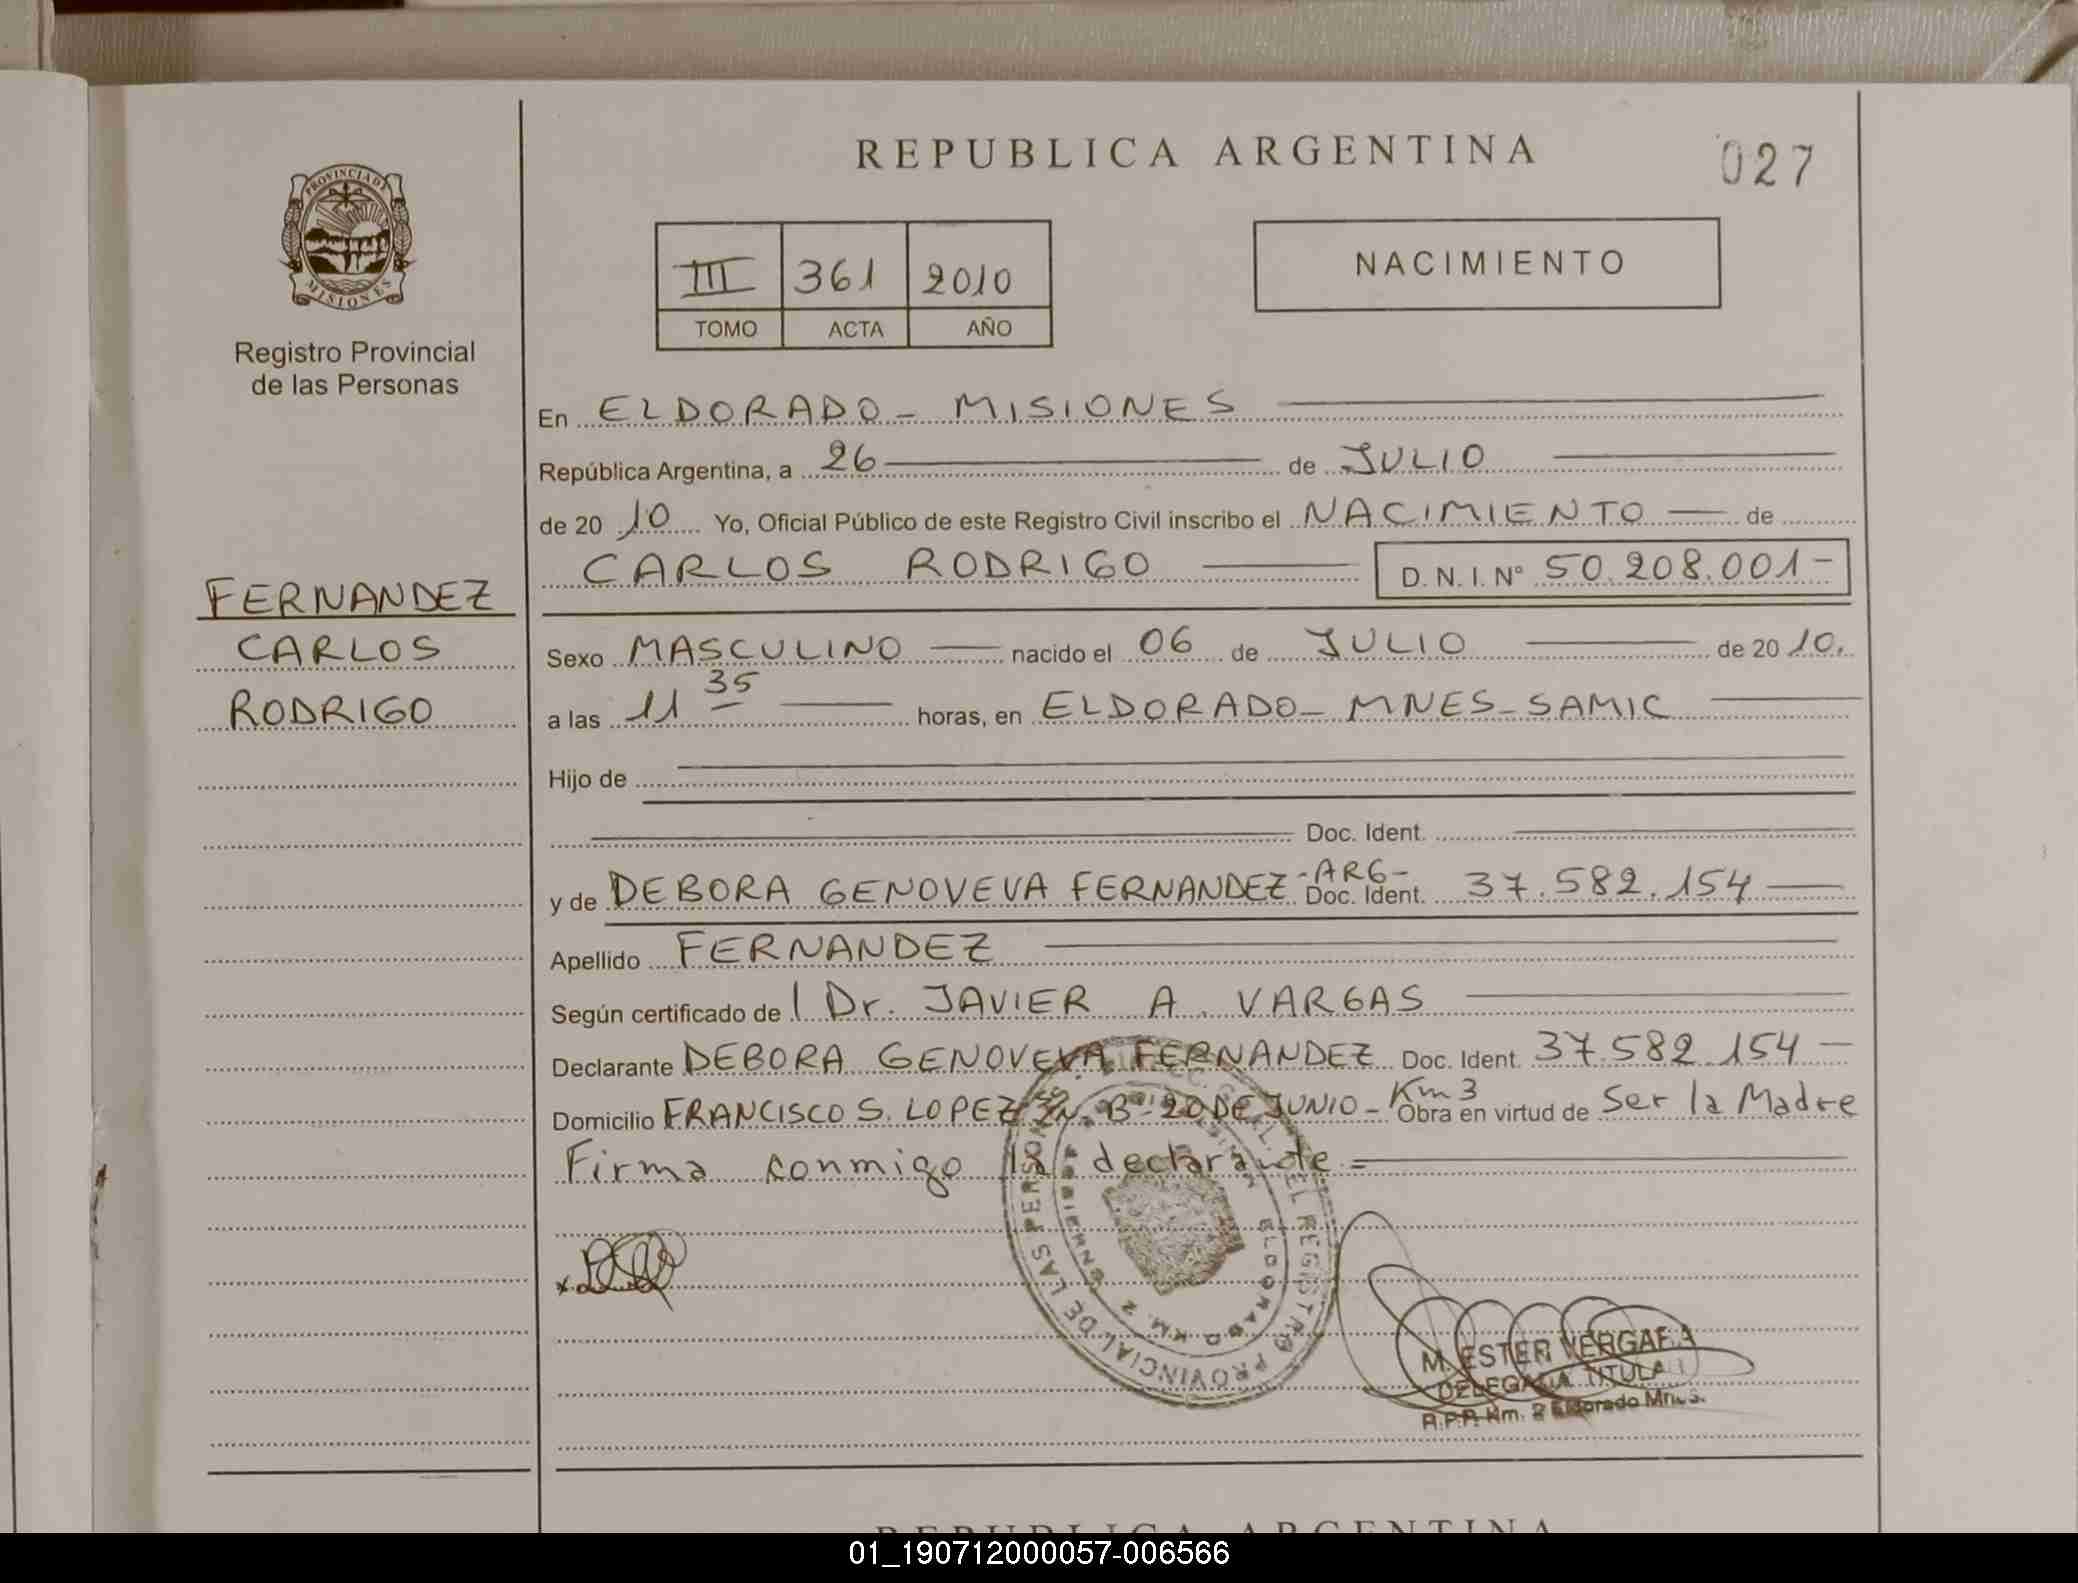 REPUBLICA ARGENTINA
027
PROVINCIA DE
MISIONES
Registro Provincial
de las Personas
III 361 2010
TOMO ACTA AÑO
NACIMIENTO
En ELDORADO - MISIONES
República Argentina, a 26 de JULIO
de 20 10 Yo, Oficial Público de este Registro Civil inscribo el NACIMIENTO de
CARLOS RODRIGO D.N.I. Nº 50.208.001-
FERNANDEZ
CARLOS
RODRIGO
Sexo MASCULINO nacido el 06 de JULIO de 20 10.
a las 11 35 horas, en ELDORADO - MNES - SAMIC
Hijo de
Doc. Ident.
y de DEBORA GENOVEVA FERNANDEZ -ARG- Doc. Ident. 37.582.154
Apellido FERNANDEZ
Según certificado de l Dr. JAVIER A. VARGAS
Declarante DEBORA GENOVEVA FERNANDEZ Doc. Ident. 37.582.154
Domicilio FRANCISCO S. LOPEZ S/N. B- 20 DE JUNIO - Km 3 Obra en virtud de Ser la Madre
Firma conmigo la declarante =
REGISTRO PROVINCIAL DE LAS PERSONAS
ELDORADO KM. 2
M. ESTER VERGARA
DELEGADA TITULAR
R.P.P. Km. 2 Eldorado Mnes.
REPUBLICA ARGENTINA
01_190712000057-006566